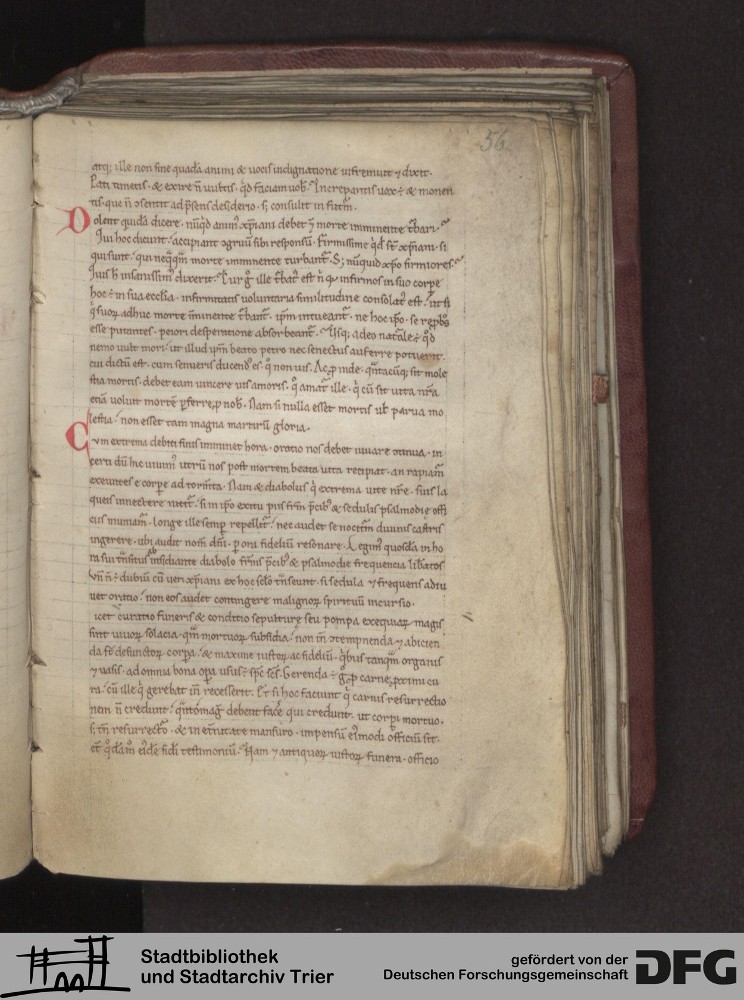 56
atq; ille non sine quadã animi & vocis indignatione infremuit ⁊ dixit.
Pati timetis. & exire ñ vultis. qͥd faciam uob̃. Increpantis uox ÷ & monen
tis. que ñ ɔsentit ad p̃sens desiderio. s; consulit in futũ.
Dolent quidã dicere. nũqͥd animꝰ xp̃iani debet ꝯ morte imminente t̃bari.
Qui hoc dicunt. accipiant ogruũ sibi responsũ. Firmissime qͥdẽ st̃ xp̃iani. si
qui sunt. qui neqq̃m morte imminente turbant̃. S; nũquid xp̃o firmiores.
Quis h̃ insanissimꝰ dixerit. Cur gͦ ille t̃batꝰ est ñ qͥ infirmos in suo corpe
hoc ÷ in sua ecclia. infirmitatis voluntaria similitudine consolatꝰ est. ut si
qͥ suoꝝ adhuc morte ĩminente t̃bant̃. ipm̃ intueant̃. ne hoc ipo. se rep̃bos
esse putantes. peiori desperatione absorbeant̃. Usq; adeo natale ÷ qͦd
nemo uult mori. ut illud ipm̃ beato petro nec senectus auferre potuerit.
cui dictũ est. cum senueris ducendꝰ es. qͦ non uis. Ac ꝑinde. qͣntacũq; sit mole
stia mortis. debet eam uincere uis amoris. qͦ amat̃ ille. qͥ cũ sit uita nr̃a
etiã voluit mortẽ ꝑferre ꝓ nob̃. Nam si nulla esset mortis ul̃ parua mo
lestia. non esset tam magna martirũ gloria.
Cvm extrema debiti finis imminet hora. oratio nos debet iuuare ɔtinua. in
certi dũ hinc uiuimꝰ utrũ nos post mortem beata uita recipiat. an rapiam̃
exeuntes e corpe ad torm̃ta. Nam & diabolus qͥ extrema uite nr̃e. suis la
queis innectere nitit̃. si in ipo exitu piis firm̃ p̃cibꝰ & sedulis psalmodie offi
ciis muniam̃. longe ille semp repellit̃. nec audet se noctim̃ diuinis castris
ingerere. ubi audit nom̃ dñi. p ora fideliũ resonare. Legimꝰ quosdã in ho
ra sui t̃nsitus ab insidiante diabolo firmis p̃cibꝰ & psalmodie frequencia libatos
Vñ ñ ÷ dubiũ cũ veri xp̃iani ex hoc sclo t̃nseunt. si sedula ⁊ frequens adiu
uet oratio. non eos audet contingere malignoꝝ spirituũ incursio.
icet curatio funeris & conditio sepulture seu pompa exequiaꝝ magis
sint uiuoꝝ solacia. qm̃ mortuoꝝ subsidia. non tñ ɔtempnenda ⁊ abicien
da st̃ defunctoꝝ corpa. & maxime iustoꝝ ac fideliũ. qͥbus tanqm̃ organis
⁊ uasis. ad omnia bona opa usus ÷ sp̃c sc̃s. Gerenda ÷ gͦ ꝓ carne, ꝓximi cu
ra. cũ ille qͥ gerebat iñ recesserit. Et si hoc faciunt qͥ carnis resurrectio
nem ñ credunt. qͣntomagͥ debent face qui credunt. ut corpi mortuo.
s; tñ resurrectͦo. & in et̃nitate mansuro. impensũ eꝰmodi officiũ sit.
& qͦdam̃ eidẽ fidei testimoniũ. Nam ⁊ antiquoꝝ iustoꝝ funera. officio
Stadtbibliothek
und Stadtarchiv Trier
gefördert von der
Deutschen Forschungsgemeinschaft
DFG